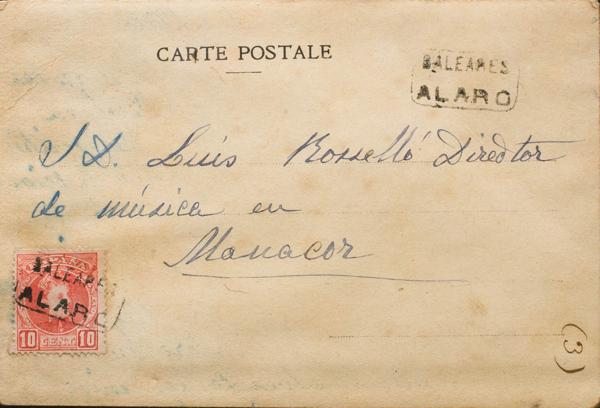 CARTE POSTALE
BALEARES
ALARO
S D. Luis Rosselló Diredtor
de música en
Manacor
BALEARES
ALARO
10 CENTS 10
(3)